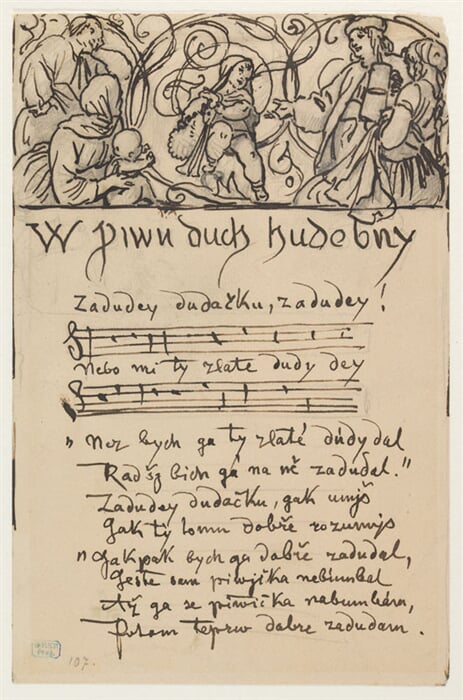 W piwu duch hudebny
Zadudey dudačku, zadudey!
Nebo mi ty zlate dudy dey
„Nez bych ga ty zlaté dúdy dal
Radšz bich gá na ně zadudal."
Zadudey dudačku, gak umjš
Gak ty tomu dobře rozumjs
„Gakpak bych ga dobře zadudal,
Geste sem piwjčka nebumbal
Až ga se piwička nabumbám,
Potom teprw dobře zadudam.
107.